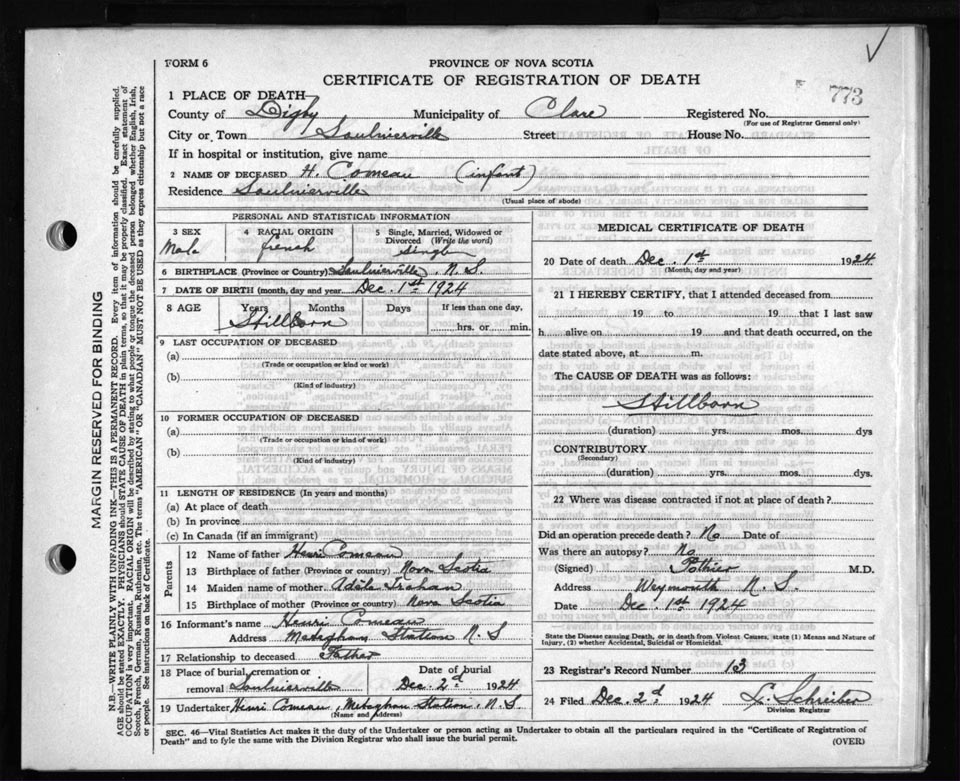 FORM 6
PROVINCE OF NOVA SCOTIA
CERTIFICATE OF REGISTRATION OF DEATH
773
1 PLACE OF DEATH
County of Digby Municipality of Clare Registered No.
(For use of Registrar General only)
City or Town Saulnierville Street House No.
If in hospital or institution, give name
2 NAME OF DECEASED H. Comeau (infant)
Residence Saulnierville
(Usual place of abode)
PERSONAL AND STATISTICAL INFORMATION
3 SEX 4 RACIAL ORIGIN 5 Single, Married, Widowed or Divorced (Write the word)
Male french single
6 BIRTHPLACE (Province or Country) Saulnierville, N.S.
7 DATE OF BIRTH (month, day and year Dec. 1st 1924
8 AGE Years Months Days If less than one day,
Stillborn hrs. or min.
9 LAST OCCUPATION OF DECEASED
(a)
(Trade or occupation or kind or work)
(b)
(Kind of industry)
10 FORMER OCCUPATION OF DECEASED
(a)
(Trade or occupation or kind of work)
(b)
(Kind of industry)
11 LENGTH OF RESIDENCE (In years and months)
(a) At place of death
(b) In province
(c) In Canada (if an immigrant)
Parents
12 Name of father Henri Comeau
13 Birthplace of father (Province or country) Nova Scotia
14 Maiden name of mother Adèle Trahan
15 Birthplace of mother (Province or country) Nova Scotia
16 Informant's name Henri Comeau
Address Meteghan Station N.S
17 Relationship to deceased Father
18 Place of burial, cremation or removal Saulnierville Date of burial Dec. 2d 1924
19 Undertaker Henri Comeau, Meteghan Station, N.S.
(Name and address)
MEDICAL CERTIFICATE OF DEATH
20 Date of death Dec. 1st 1924
(Month, day and year)
21 I HEREBY CERTIFY, that I attended deceased from
19 to 19 that I last saw
h alive on 19 and that death occurred, on the
date stated above, at m.
The CAUSE OF DEATH was as follows:
Stillborn
(duration) yrs. mos. dys
CONTRIBUTORY
(Secondary)
(duration) yrs. mos. dys.
22 Where was disease contracted if not at place of death?
Did an operation precede death? No Date of
Was there an autopsy? No
(Signed) Pothier M.D.
Address Weymouth N.S.
Date Dec. 1st 1924
State the Disease causing Death, or in death from Violent Causes, state (1) Means and Nature of
Injury, (2) whether Accidental, Suicidal or Homicidal.
23 Registrar's Record Number 13
24 Filed Dec. 2d 1924 L. Schreiber
Division Registrar
SEC. 46—Vital Statistics Act makes it the duty of the Undertaker or person acting as Undertaker to obtain all the particulars required in the "Certificate of Registration of
Death" and to fyle the same with the Division Registrar who shall issue the burial permit.
(OVER)
MARGIN RESERVED FOR BINDING
N.B.—WRITE PLAINLY WITH UNFADING INK—THIS IS A PERMANENT RECORD. Every item of information should be carefully supplied.
AGE should be stated EXACTLY. PHYSICIANS should STATE CAUSE OF DEATH in plain terms, so that it may be properly classified. Exact statement of
OCCUPATION is very important. RACIAL ORIGIN will be described by stating to what people or tongue the deceased person belonged whether English, Irish,
Scotch, French, German, Russian, Ruthenian, etc. The terms "AMERICAN" OR "CANADIAN" MUST NOT BE USED as they express citizenship but not a race
or people. See instructions on back of Certificate.